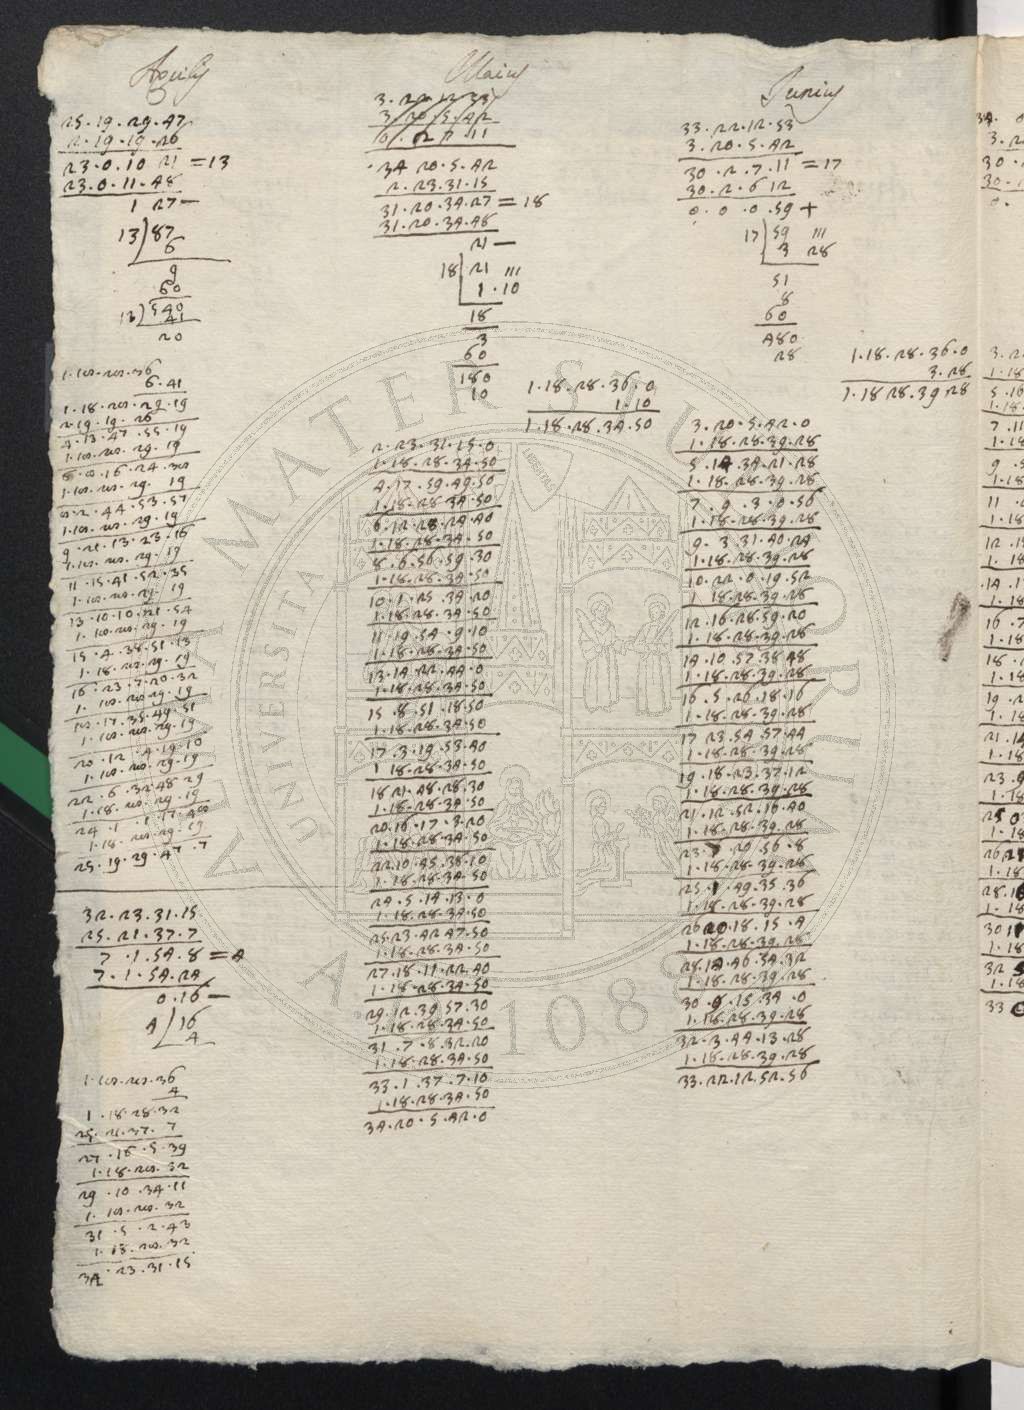 Aprilis
25.19.29.47
2.19.19.26
23.0.10 21 = 13
23.0.11.48
1 27 —
13) 87
6
9
60
13) 540
41
20
1.18.28.36
6.41
1.18.28.29.19
2.19.19.26
4.13.47.55.19
1.18.28.29.19
1.18.28.29.19
8.2.44.53.57
1.18.28.29.19
9.21.13.23.16
1.18.28.29.19
11.15.41.52.35
1.18.28.29.19
13.10.10.21.54
1.18.28.29.19
15.4.38.51.13
1.18.28.29.19
16.23.7.20.32
1.18.28.29.19
18.17.35.49.51
1.18.28.29.19
20.12.4.19.10
1.18.28.29.19
22.6.32.48.29
1.18.28.29.19
1.18.28.29.19
25.19.29.47.7
32.23.31.15
25.21.37.7
7.1.54.8 = 4
7.1.54.24
0.16 —
4 16
4
1.18.28.36
4
1.18.28.32
25.21.37.7
27.16.5.39
1.18.28.32
29.10.34.11
1.18.28.32
31.5.2.43
1.18.28.32
32.23.31.15
Maius
3.20.5.42
34 20.5.42
2.23.31.15
31.20.34.27 = 18
31.20.34.48
21 —
18 21 III
1.10
18
3
60
180
10
1.18.28.36.0
1.10
1.18.28.34.50
2.23.31.15.0
1.18.28.34.50
4.17.59.49.50
1.18.28.34.50
6.12.28.24.40
1.18.28.34.50
8.6.56.59.30
1.18.28.34.50
10.1.25.34.20
1.18.28.34.50
11.19.54.9.10
1.18.28.34.50
13.14.22.44.0
1.18.28.34.50
15.8.51.18.50
1.18.28.34.50
17.3.19.53.40
1.18.28.34.50
18 21.48.28.30
1.18.28.34.50
20.16.17.3.20
1.18.28.34.50
22.10.45.38.10
1.18.28.34.50
24.5.14.13.0
1.18.28.34.50
25.23.42 47.50
1.18.28.34.50
27.18.11.22.40
1.18.28.34.50
29.12.39 57.30
1.18.28.34.50
31.7.8.32.20
1.18.28.34.50
33.1.37.7.10
1.18.28.34.50
34.20.5.42.0
Junius
33.22.12.53
3.20.5.42
30.2.7.11 = 17
30.2.6 12
0.0.0.59 +
17 59 III
3 28
51
8
60
480
28
1.18.28.36.0
3.28
1.18 28.39 28
3.20.5.42.0
1.18.28.39.28
5.14.34.21.28
1.18.28.39.28
7.9.3.0.56
1.18.28.39.28
9.3.31.40.24
1.18.28.39.28
10.22.0.19.52
1 18.28.39.28
12.16.28.59.20
1.18.28.39.28
14.10.57.38 48
1.18.28.39.28
16.5.26.18.16
1.18.28.39.28
17 23.54.57.44
1.18.28.39.28
19.18.23.37.12
1.18.28.39.28
21.12.52.16.40
1.18.28.39.28
23.7.20.56.8
1.18.28.39.28
25.1.49.35.36
1.18.28.39.28
26 20.18.15.4
1.18.28.39.28
28.14.46.54.32
1.18.28.39.28
30.9.15.34.0
1.18.28.39.28
32.3.44.13.28
1.18.28.39.28
33.22.12.52.56